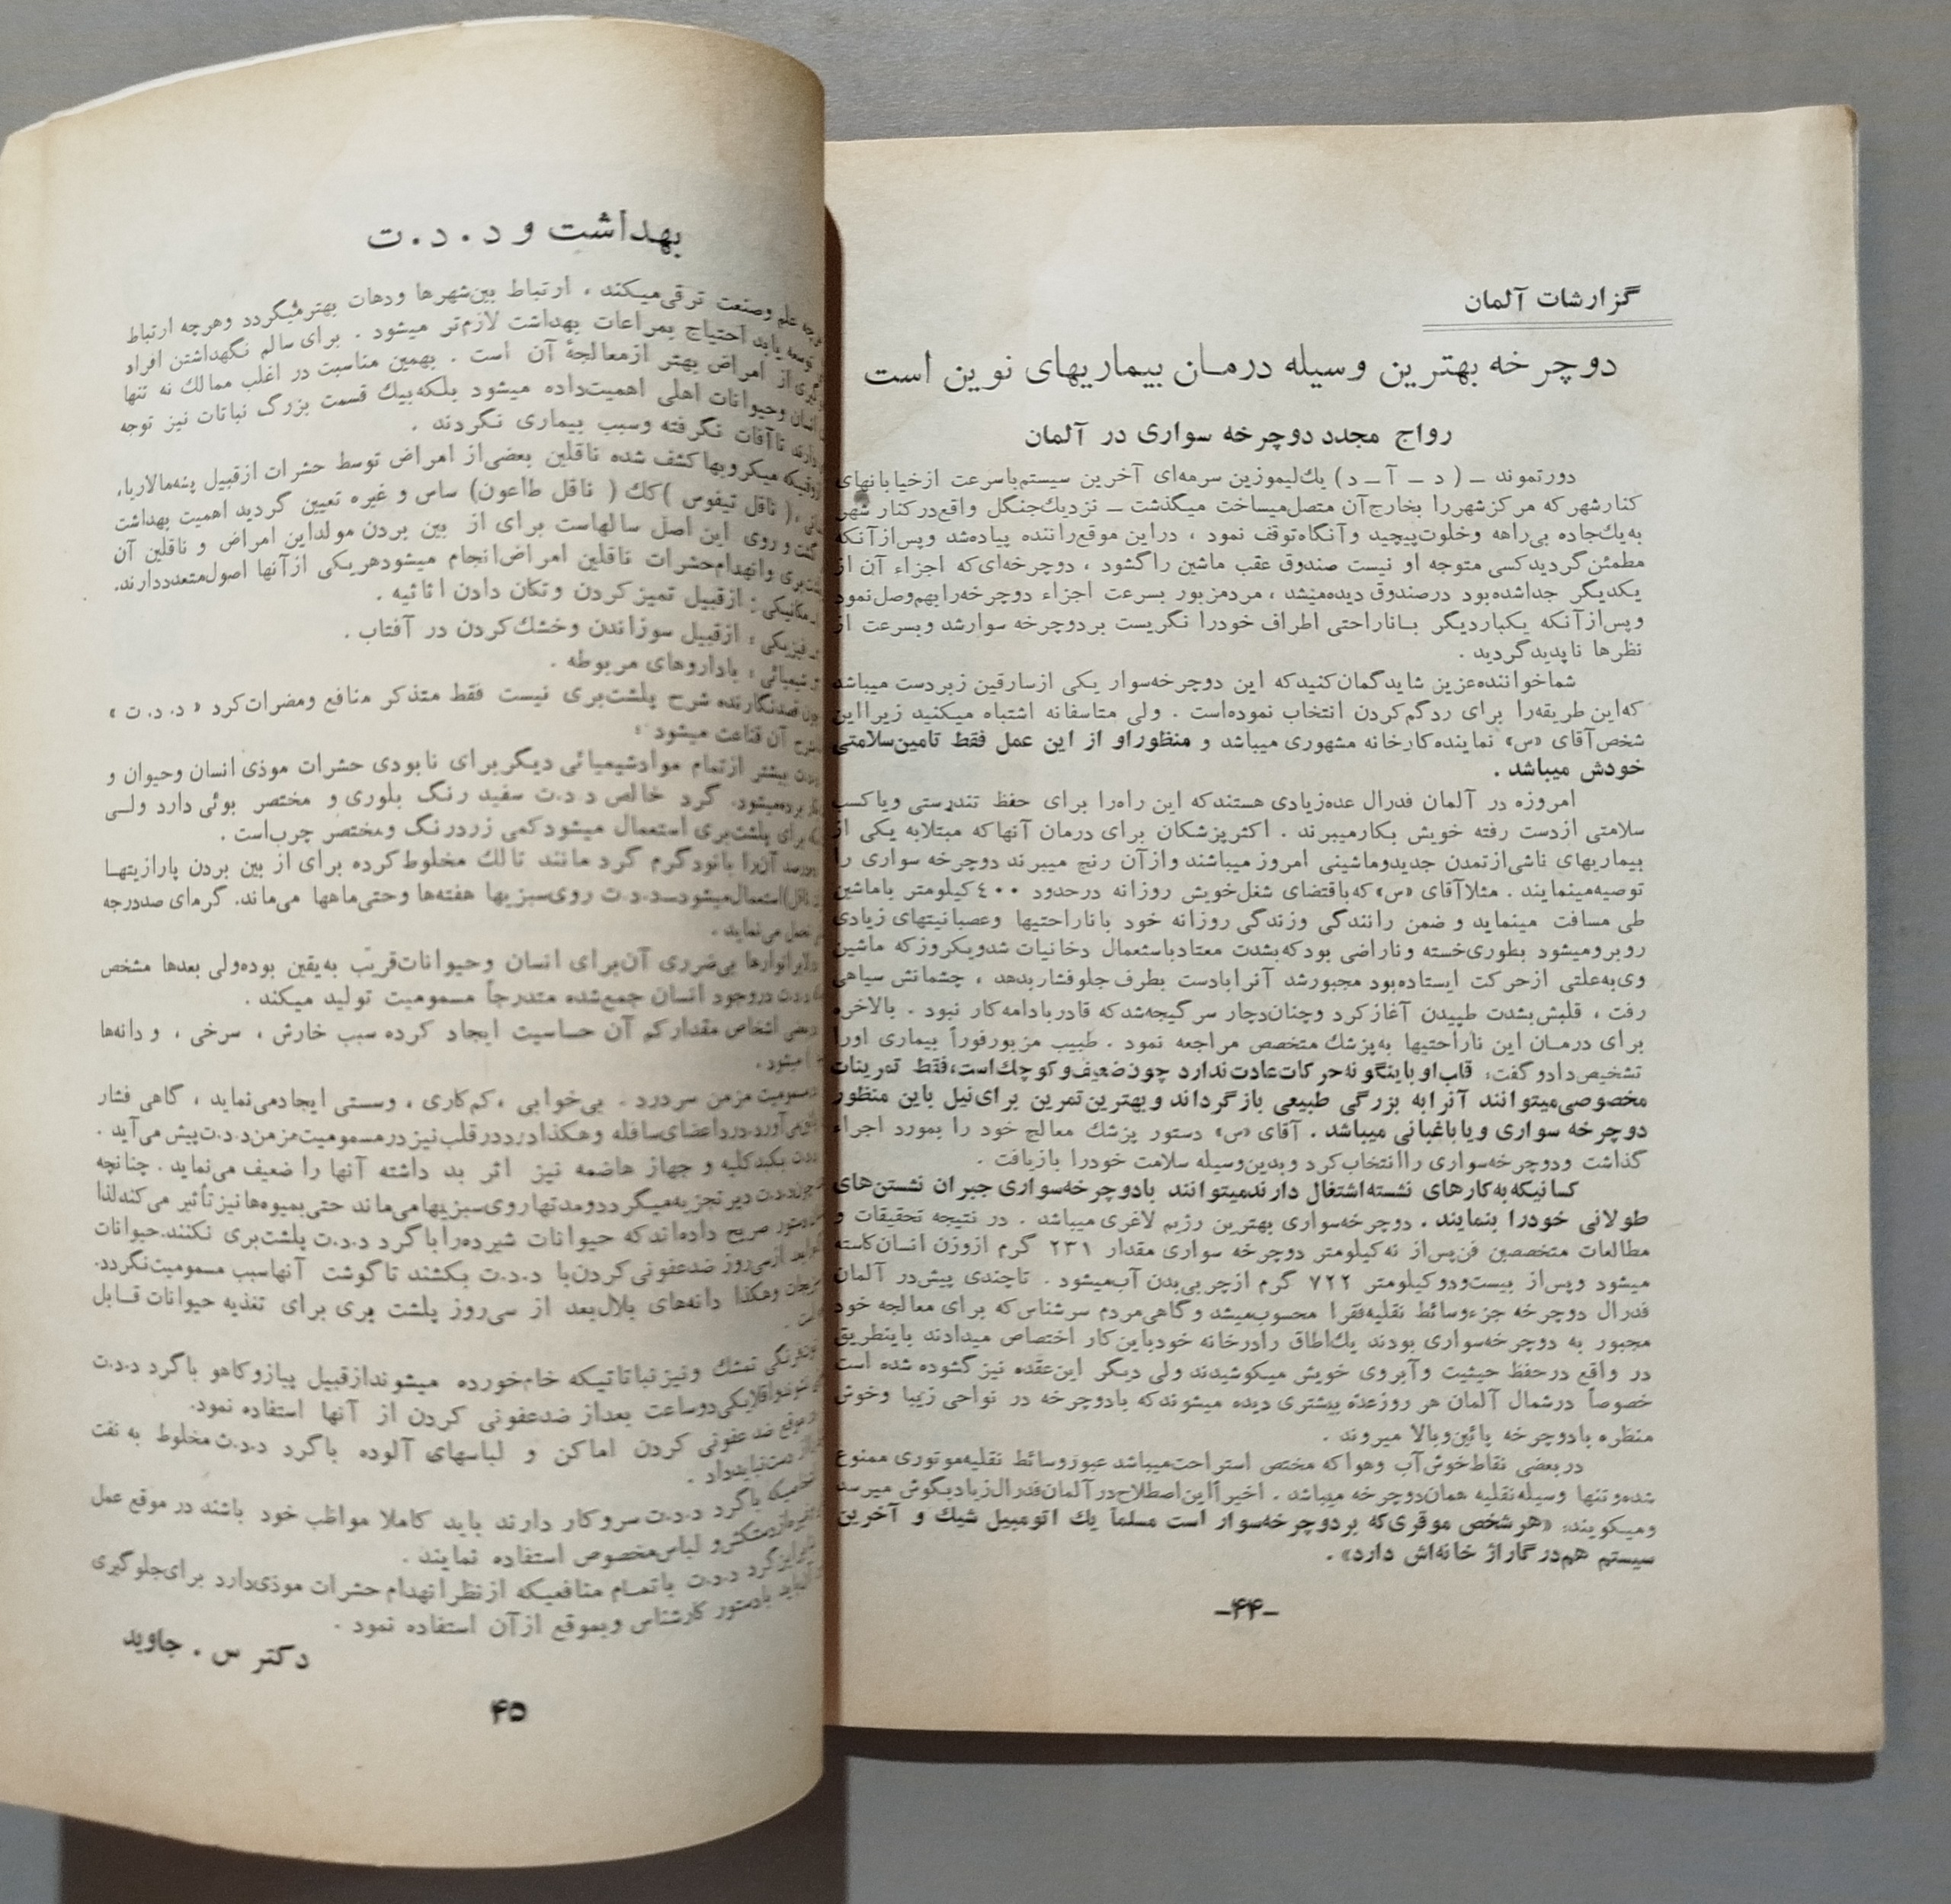 گزارشات آلمان
دوچرخه بهترین وسیله درمان بیماریهای نوین است
رواج مجدد دوچرخه سواری در آلمان
دورتموند ــ ( د ــ آ ــ د ) یك لیموزین سرمه‌ای آخرین سیستم باسرعت ازخیابانهای
کنارشهر که مرکزشهررا بخارج آن متصل میساخت میگذشت ــ نزدیك جنگل واقع در کنار شهر
به یك جاده بی راهه وخلوت پیچید و آنگاه توقف نمود ، دراین موقع راننده پیاده شد وپس از آنکه
مطمئن گردید کسی متوجه او نیست صندوق عقب ماشین را گشود ، دوچرخه‌ای که اجزاء آن از
یکدیگر جداشده بود درصندوق دیده میشد ، مردمزبور بسرعت اجزاء دوچرخه رابهم وصل نمود
وپس از آنکه یکباردیگر بـاناراحتی اطراف خودرا نگریست بردوچرخه سوارشد وبسرعت از
نظرها ناپدید گردید .
شما خواننده عزیز شاید گمان کنید که این دوچرخه سوار یکی ازسارقین زبردست میباشد
که این طریقه را برای ردگم کردن انتخاب نموده است . ولی متاسفانه اشتباه میکنید زیرا این
شخص آقای «س» نماینده کارخانه مشهوری میباشد و منظور او از این عمل فقط تامین سلامتی
خودش میباشد .
امروزه در آلمان فدرال عده زیادی هستند که این راه را برای حفظ تندرستی ویا کسب
سلامتی ازدست رفته خویش بکار میبرند . اکثر پزشکان برای درمان آنها که مبتلابه یکی از
بیماریهای ناشی از تمدن جدید وماشینی امروز میباشند وازآن رنج میبرند دوچرخه سواری را
توصیه مینمایند . مثلا آقای «س» که باقتضای شغل خویش روزانه درحدود ۴۰۰ کیلومتر باماشین
طی مسافت مینماید و ضمن رانندگی وزندگی روزانه خود باناراحتیها وعصبانیتهای زیادی
روبرومیشود بطوری خسته وناراضی بود که بشدت معتاد باستعمال دخانیات شد ویکروز که ماشین
وی به علتی ازحرکت ایستاده بود مجبور شد آنرا بادست بطرف جلو فشار بدهد ، چشمانش سیاهی
رفت ، قلبش بشدت طپیدن آغاز کرد وچنان دچار سرگیجه شد که قادر بادامه کار نبود . بالاخره
برای درمـان این ناراحتیها به پزشك متخصص مراجعه نمود . طبیب مزبور فوراً بیماری اورا
تشخیص داد و گفت: قلب او باینگونه حرکات عادت ندارد چون ضعیف و کوچك است، فقط تمرینات
مخصوصی میتوانند آنرا به بزرگی طبیعی بازگرداند و بهترین تمرین برای نیل باین منظور
دوچرخه سواری ویا باغبانی میباشد . آقای «س» دستور پزشك معالج خود را بمورد اجراء
گذاشت ودوچرخه سواری را انتخاب کرد وبدین وسیله سلامت خودرا بازیافت .
کسانیکه به کارهای نشسته اشتغال دارند میتوانند بادوچرخه سواری جبران نشستن های
طولانی خودرا بنمایند . دوچرخه سواری بهترین رژیم لاغری میباشد . در نتیجه تحقیقات و
مطالعات متخصصین فن پس از نه کیلومتر دوچرخه سواری مقدار ۲۳۱ گرم ازوزن انسان کاسته
میشود وپس از بیست ودو کیلومتر ۷۲۲ گرم ازچربی بدن آب میشود . تاچندی پیش در آلمان
فدرال دوچرخه جزء وسائط نقلیه فقرا محسوب میشد و گاهی مردم سرشناس که برای معالجه خود
مجبور به دوچرخه سواری بودند یك اطاق رادرخانه خود باین کار اختصاص میدادند باینطریق
در واقع درحفظ حیثیت وآبروی خویش میکوشیدند ولی دیگر این عقده نیز گشوده شده است
خصوصاً درشمال آلمان هر روز عده بیشتری دیده میشوند که بادوچرخه در نواحی زیبا وخوش
منظره بادوچرخه پائین وبالا میروند .
دربعضی نقاط خوش آب وهوا که مختص استراحت میباشد عبور وسائط نقلیه موتوری ممنوع
شده وتنها وسیله نقلیه همان دوچرخه میباشد . اخیراً این اصطلاح در آلمان فدرال زیاد بگوش میرسد
ومیگویند: «هر شخص موقری که بر دوچرخه سوار است مسلماً یك اتومبیل شیك و آخرین
سیستم هم در گاراژ خانه‌اش دارد» .
-۴۴-
بهداشت و د . د . ت
علم وصنعت ترقی میکند ، ارتباط بین شهرها ودهات بهتر میگردد وهرچه ارتباط
توسعه یابد احتیاج بمراعات بهداشت لازم‌تر میشود . برای سالم نگهداشتن افراد
از امراض بهتر ازمعالجهٔ آن است . بهمین مناسبت در اغلب ممالك نه تنها
انسان وحیوانات اهلی اهمیت داده میشود بلکه بیك قسمت بزرگ نباتات نیز توجه
دارند تا آفات نگرفته وسبب بیماری نگردند .
میکروبها کشف شده ناقلین بعضی از امراض توسط حشرات ازقبیل پشه مالاریا،
( ناقل تیفوس ) کك ( ناقل طاعون) ساس و غیره تعیین گردید اهمیت بهداشت
و روی این اصل سالهاست برای از بین بردن مولداین امراض و ناقلین آن
وانهدام حشرات ناقلین امراض انجام میشود هریکی از آنها اصول متعدد دارند.
مکانیکی : ازقبیل تمیز کردن وتکان دادن اثاثیه .
فیزیکی : ازقبیل سوزاندن وخشك کردن در آفتاب .
شیمیائی : باداروهای مربوطه .
نگارنده شرح پلشت بری نیست فقط متذکر منافع ومضرات گرد « د . د . ت »
آن قناعت میشود :
بیشتر ازتمام مواد شیمیائی دیگر برای نابودی حشرات موذی انسان وحیوان و
برده میشود. گرد خالص د.د.ت سفید رنگ بلوری و مختصر بوئی دارد ولـی
برای پلشت بری استعمال میشود کمی زردرنگ ومختصر چرب است .
آنرا باتود گرم گرد مانند تالك مخلوط کرده برای از بین بردن پارازیتهـا
استعمال میشود ـ د.د.ت روی سبزیها هفته‌ها وحتی ماهها می‌ماند. گرمای صد درجه
تحمل می‌نماید .
بی ضرری آن برای انسان وحیوانات قریب به یقین بوده ولی بعدها مشخص
د.د.ت دروجود انسان جمع شده متدرجاً مسمومیت تولید میکند .
اشخاص مقدار کم آن حساسیت ایجاد کرده سبب خارش ، سرخی ، و دانه‌ها
میشود .
مسمومیت مزمن سردرد . بی خوابی ، کم کاری ، وسستی ایجاد می‌نماید ، گاهی فشار
درد اعضای سافله وهکذا درد در قلب نیز در مسمومیت مزمن د.د.ت پیش می‌آید .
بکبد کلیه و جهاز هاضمه نیز اثر بد داشته آنها را ضعیف می‌نماید . چنانچه
د.د.ت دیر تجزیه میگردد ومدتها روی سبزیها می‌ماند حتی بمیوه‌ها نیز تأثیر می‌کند لذا
دستور صریح داده‌اند که حیوانات شیرده را با گرد د.د.ت پلشت بری نکنند. حیوانات
از سی روز ضدعفونی کردن با د.د.ت بکشند تا گوشت آنها سبب مسمومیت نگردد.
وهکذا دانه‌های بلال بعد از سی روز پلشت بری برای تغذیه حیوانات قـابل
تمشك ونیز نباتاتیکه خام خورده میشوند ازقبیل پیاز و کاهو با گرد د.د.ت
یکی دوساعت بعداز ضدعفونی کردن از آنها استفاده نمود.
موقع ضد عفونی کردن اماکن و لباسهای آلوده با گرد د.د.ت مخلوط به نفت
دست نباید داد .
با گرد د.د.ت سروکار دارند باید کاملا مواظب خود باشند در موقع عمل
دستکش و لباس مخصوص استفاده نمایند .
گرد د.د.ت باتمـام منافعیکه ازنظر انهدام حشرات موذی دارد برای جلوگیری
بادستور کارشناس وبموقع ازآن استفاده نمود .
دکتر س . جاوید
۴۵